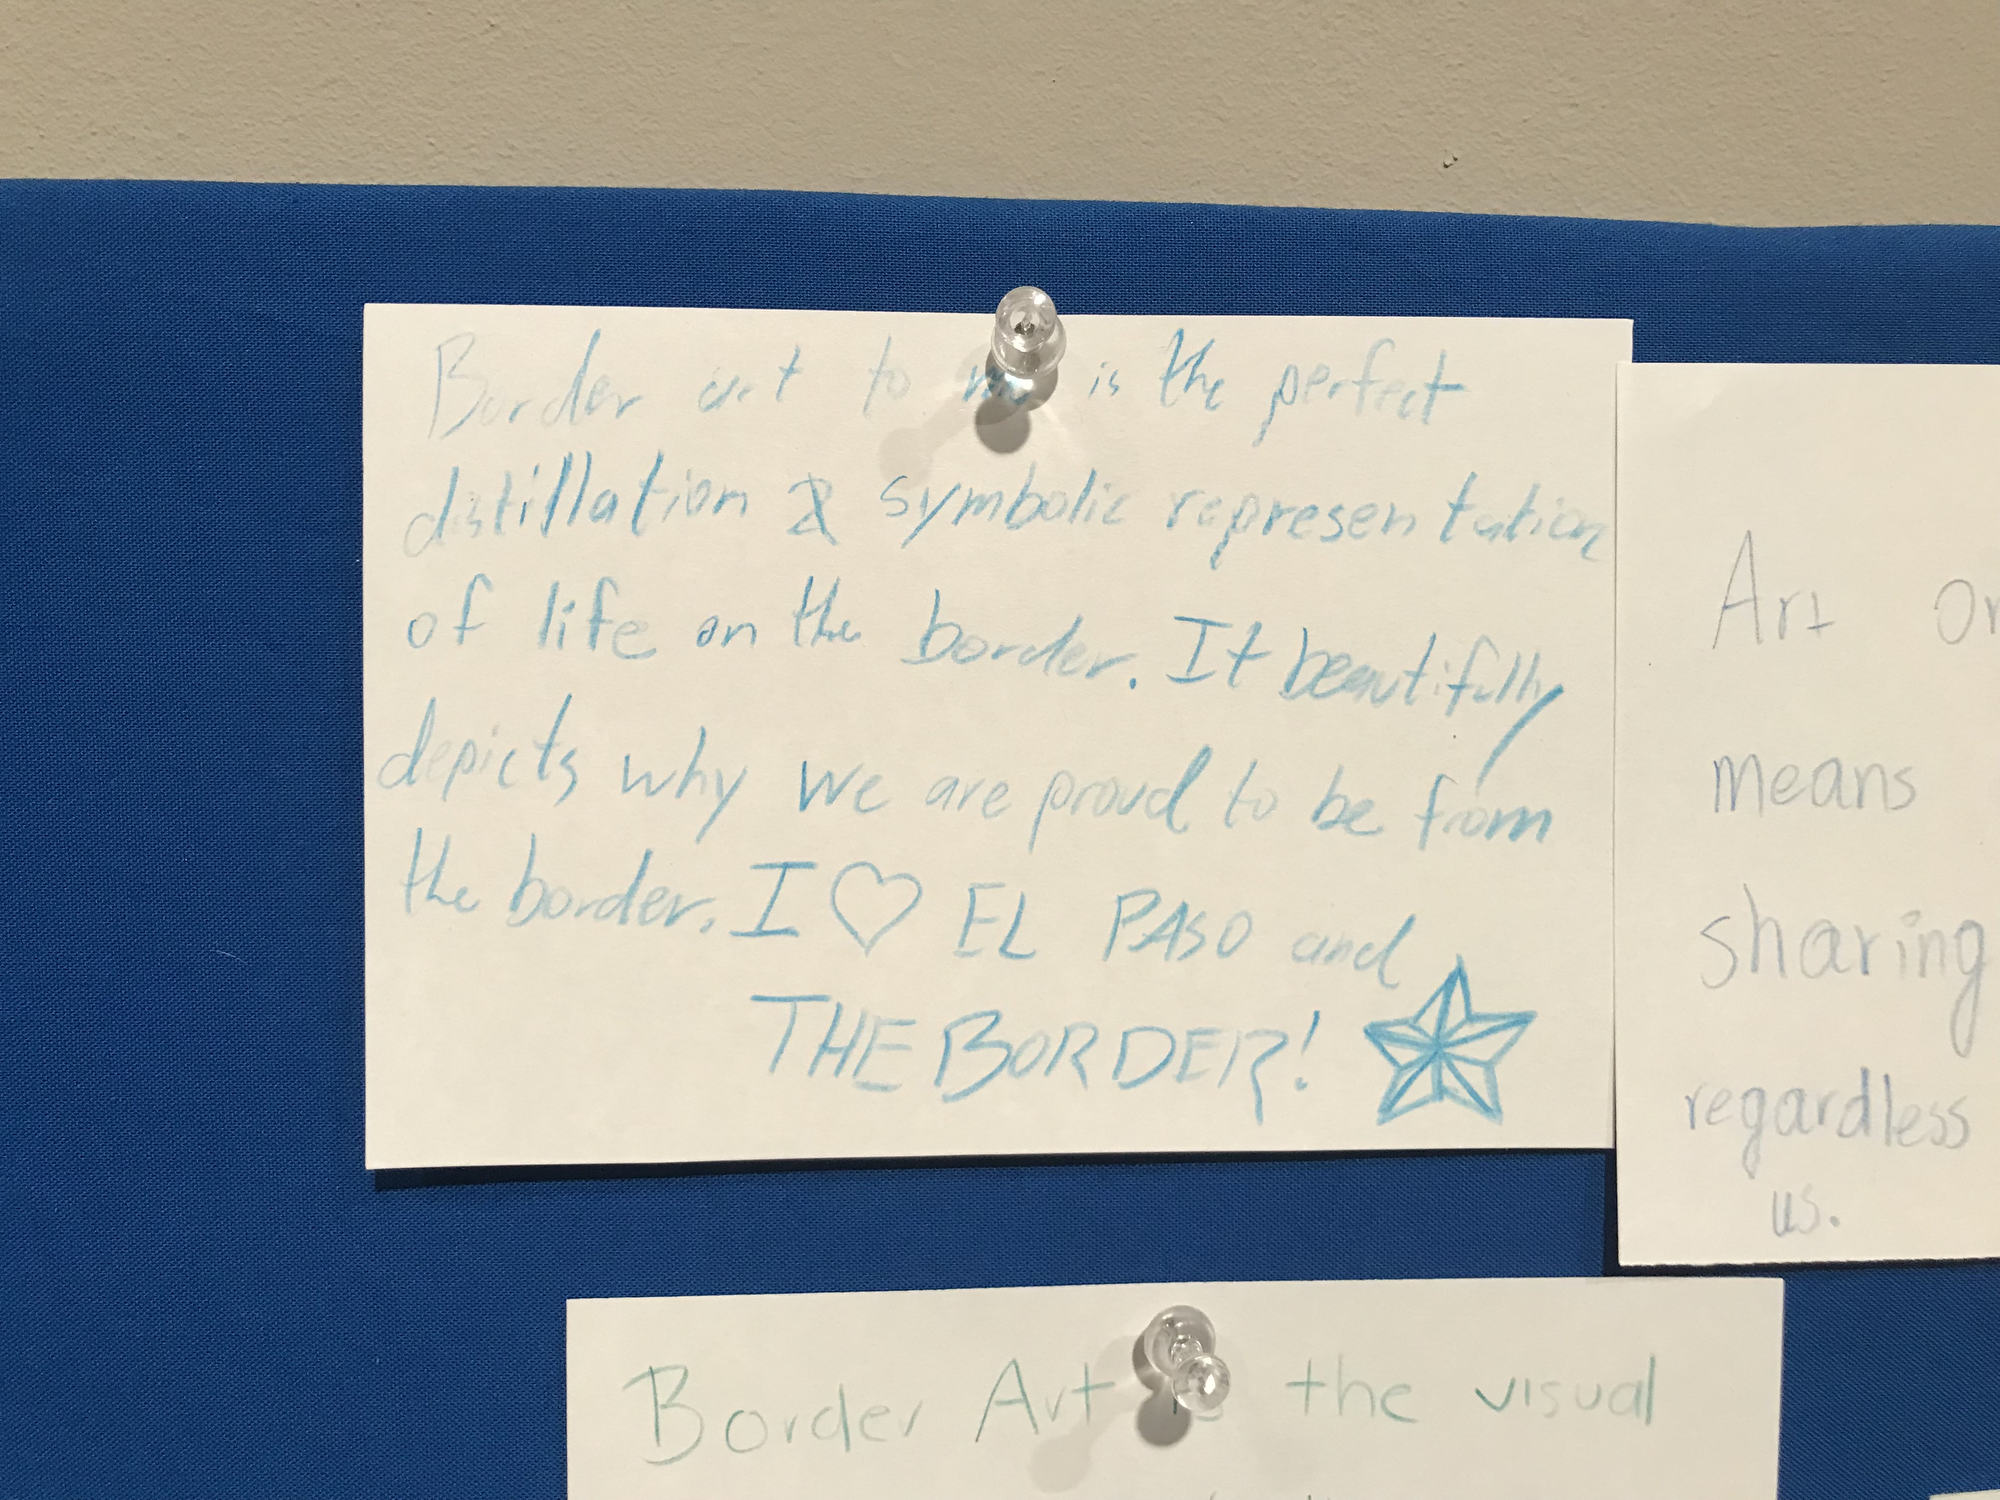 Border art to me is the perfect
distillation & symbolic representation
of life on the border. It beautifully
depicts why we are proud to be from
the border. I ♡ EL PASO and
THE BORDER!
Art
means
sharing
regardless
us.
Border Art is the visual